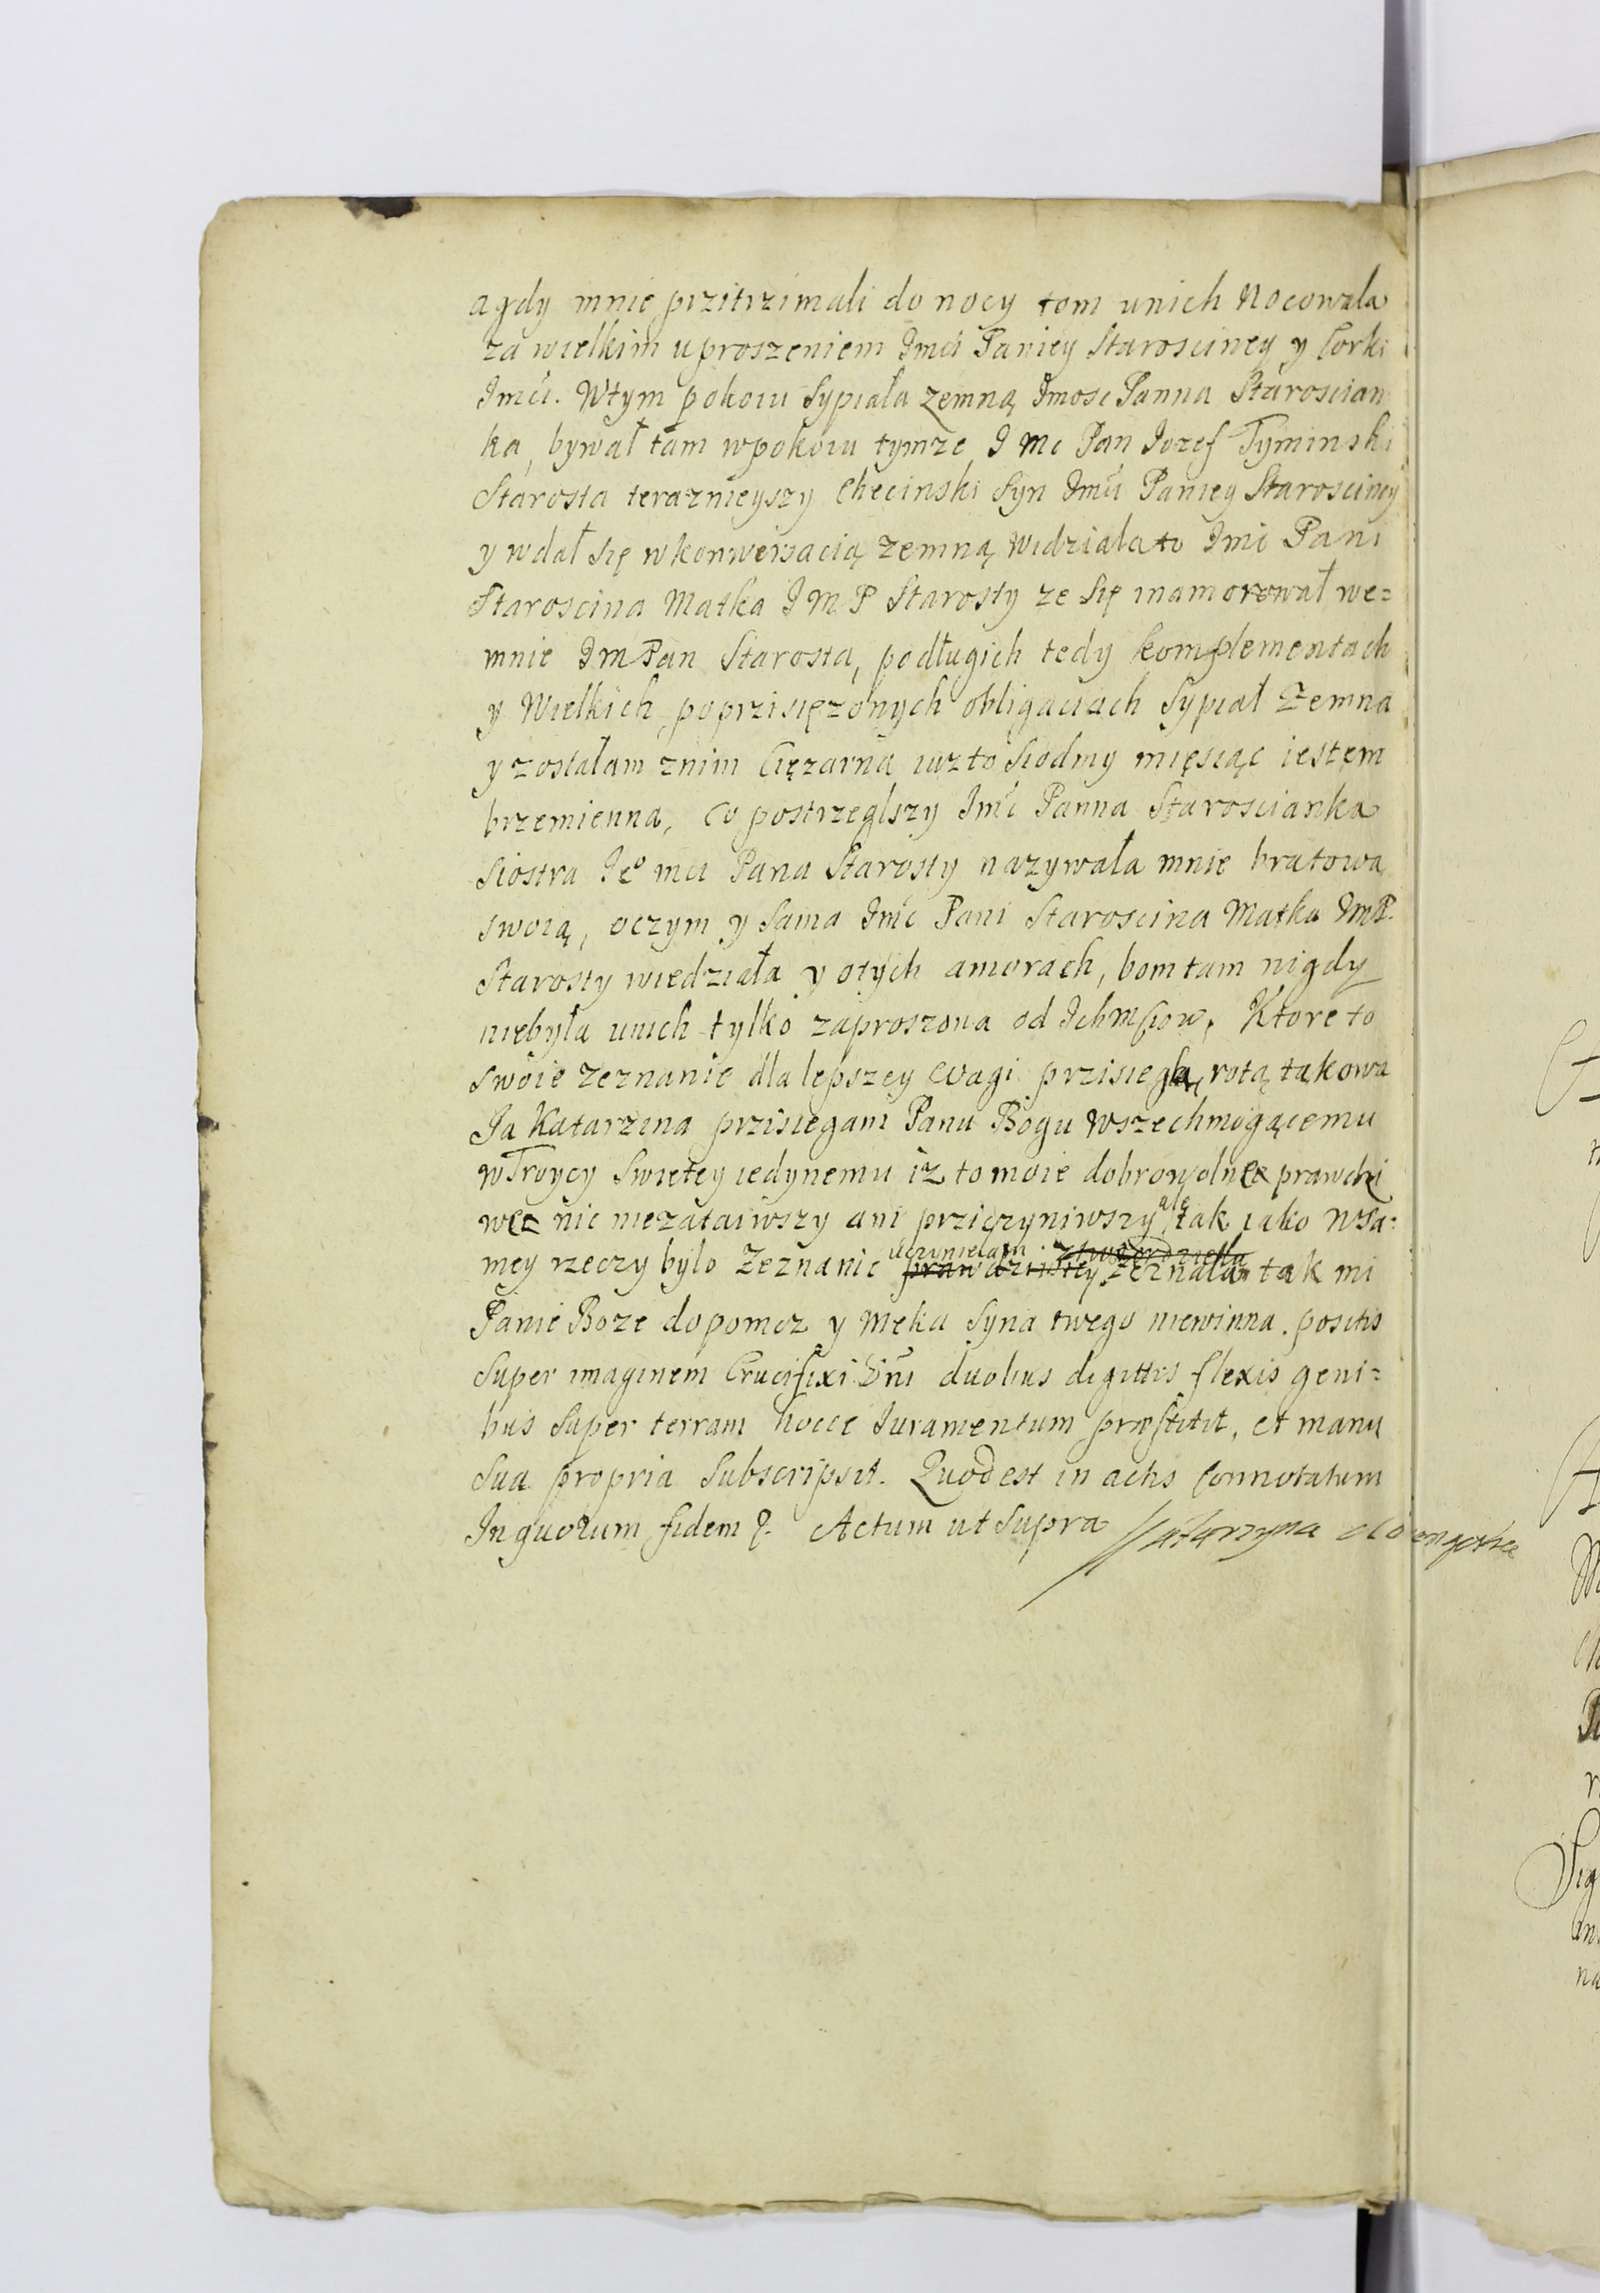 agdy mnie przitrzimali do nocy tom unich Nocowała
za wielkim uproszeniem Imci Paniey Starosciney y Corki
Imci. Wtym pokoiu Sypiała zemną Imosc Panna Starościan
ka, bywał tam wpokoiu tymze I Mc Pan Iozef Tyminski
Starosta teraznieyszy Checinski Syn Imci Paniey Starosciney
y wdał się wkonwersacią zemną widziała to Imc Pani
Staroscina Matka I M P Starosty ze się inamorował we=
mnie I M Pan Starosta, podługich tedy komplementach
y Wielkich poprzisięzonych obligaciach Sypiał Zemna
y zostałam znim Ciężarna iuz to siodmy miesiąc iestem
brzemienna, Co postrzegszy Imc Panna Staroscianka
Siostra Ieº mci Pana Starosty nazywała mnie bratowa
swoią, oczym y Sama Imc Pani Staroscina Matka IMP.
Starosty wiedziała y otych amorach, bom tam nigdy
niebyła unich tylko zaproszona od Ichmsciow. Ktore to
swoie zeznanie dla lepszey wagi przisiegła, rotą takowa
Ia Katarzina przisiegam Panu Bogu Wszechmogącemu
wTroycy Swietey iedynemu iz to moie dobrowolne prawdzi
we nic niezataiwszy ani przięzyniwszy ale tak iako wsa=
mey rzeczy było Zeznanie uczyniełam prawdziwiey zeznała tak mi
Panie Boze dopomoz y Meka Syna twego niewinna. positis
Super imaginem Crucifixi Dni duobus digittis flexis geni=
bus Super terram hocce Iuramentum præstitit, et manu
Sua propria Subscripsit. Quod est in actis Connotatum
In quorum fidem Actum ut Supra Katarzyna